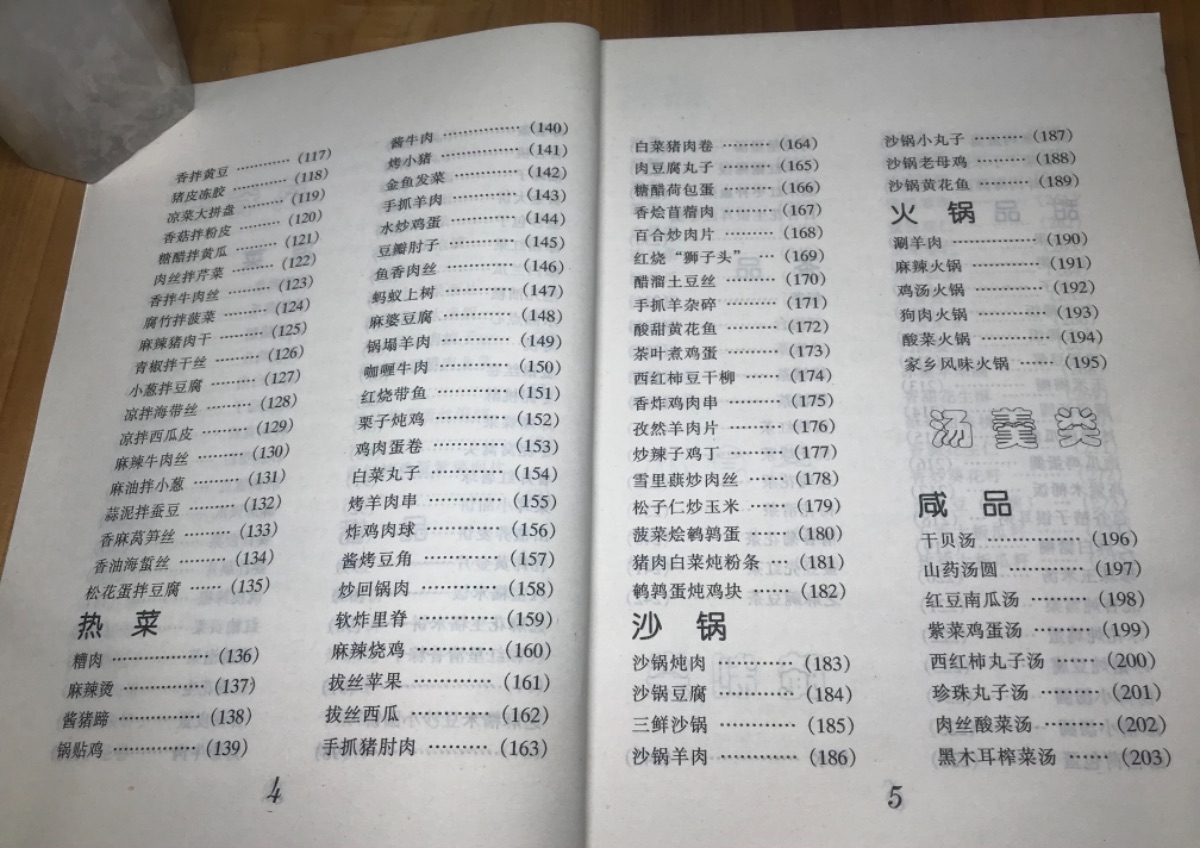 香拌黄豆 ………… (117)
猪皮冻胶 ………… (118)
凉菜大拼盘 ……… (119)
香菇拌粉皮 ……… (120)
糖醋拌黄瓜 ……… (121)
肉丝拌芹菜 ……… (122)
香拌牛肉丝 ……… (123)
腐竹拌菠菜 ……… (124)
麻辣猪肉干 ……… (125)
青椒拌干丝 ……… (126)
小葱拌豆腐 ……… (127)
凉拌海带丝 ……… (128)
凉拌西瓜皮 ……… (129)
麻辣牛肉丝 ……… (130)
麻油拌小葱 ……… (131)
蒜泥拌蚕豆 ……… (132)
香麻莴笋丝 ……… (133)
香油海蜇丝 ……… (134)
松花蛋拌豆腐 …… (135)
热 菜
糟肉 ……………… (136)
麻辣烫 …………… (137)
酱猪蹄 …………… (138)
锅贴鸡 …………… (139)
酱牛肉 …………… (140)
烤小猪 …………… (141)
金鱼发菜 ………… (142)
手抓羊肉 ………… (143)
水炒鸡蛋 ………… (144)
豆瓣肘子 ………… (145)
鱼香肉丝 ………… (146)
蚂蚁上树 ………… (147)
麻婆豆腐 ………… (148)
锅塌羊肉 ………… (149)
咖喱牛肉 ………… (150)
红烧带鱼 ………… (151)
栗子炖鸡 ………… (152)
鸡肉蛋卷 ………… (153)
白菜丸子 ………… (154)
烤羊肉串 ………… (155)
炸鸡肉球 ………… (156)
酱烤豆角 ………… (157)
炒回锅肉 ………… (158)
软炸里脊 ………… (159)
麻辣烧鸡 ………… (160)
拔丝苹果 ………… (161)
拔丝西瓜 ………… (162)
手抓猪肘肉 ……… (163)
4
白菜猪肉卷 ……… (164)
肉豆腐丸子 ……… (165)
糖醋荷包蛋 ……… (166)
香烩苜蓿肉 ……… (167)
百合炒肉片 ……… (168)
红烧“狮子头” … (169)
醋溜土豆丝 ……… (170)
手抓羊杂碎 ……… (171)
酸甜黄花鱼 ……… (172)
茶叶煮鸡蛋 ……… (173)
西红柿豆干柳 …… (174)
香炸鸡肉串 ……… (175)
孜然羊肉片 ……… (176)
炒辣子鸡丁 ……… (177)
雪里蕻炒肉丝 …… (178)
松子仁炒玉米 …… (179)
菠菜烩鹌鹑蛋 …… (180)
猪肉白菜炖粉条 … (181)
鹌鹑蛋炖鸡块 …… (182)
沙 锅
沙锅炖肉 ………… (183)
沙锅豆腐 ………… (184)
三鲜沙锅 ………… (185)
沙锅羊肉 ………… (186)
沙锅小丸子 ……… (187)
沙锅老母鸡 ……… (188)
沙锅黄花鱼 ……… (189)
火 锅
涮羊肉 …………… (190)
麻辣火锅 ………… (191)
鸡汤火锅 ………… (192)
狗肉火锅 ………… (193)
酸菜火锅 ………… (194)
家乡风味火锅 …… (195)
汤羹类
咸 品
干贝汤 …………… (196)
山药汤圆 ………… (197)
红豆南瓜汤 ……… (198)
紫菜鸡蛋汤 ……… (199)
西红柿丸子汤 …… (200)
珍珠丸子汤 ……… (201)
肉丝酸菜汤 ……… (202)
黑木耳榨菜汤 …… (203)
5